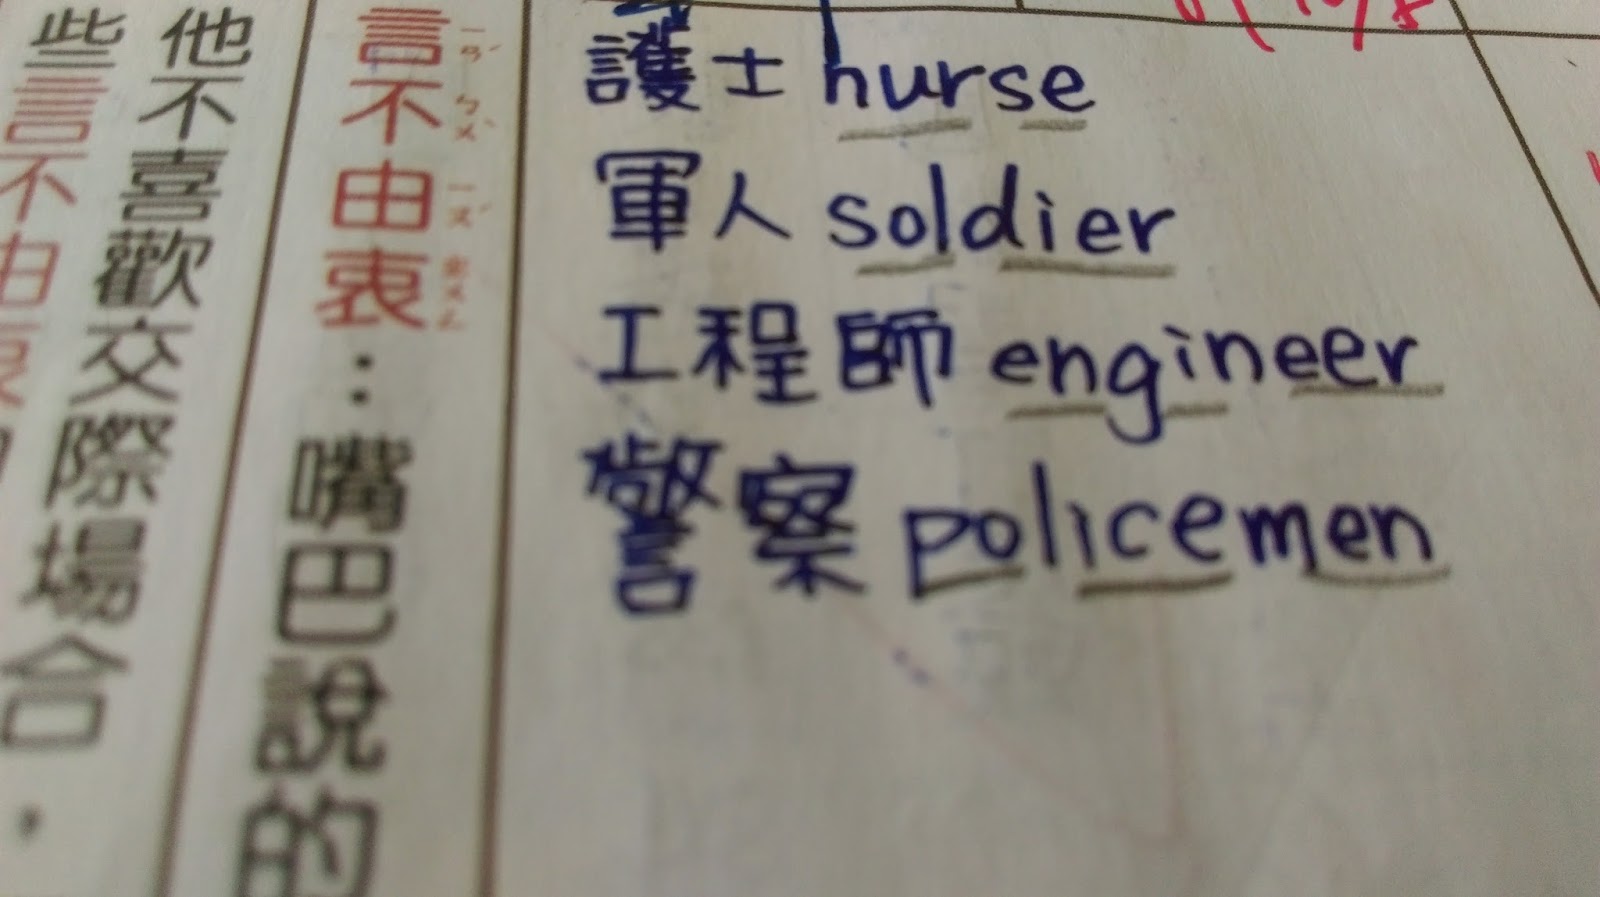 護士 nurse
軍人 soldier
工程師 engineer
警察 policemen
言不由衷：嘴巴說的
ㄧㄢˊ ㄅㄨˋ ㄧㄡˊ ㄓㄨㄥ
他不喜歡交際場合，
些言不由衷